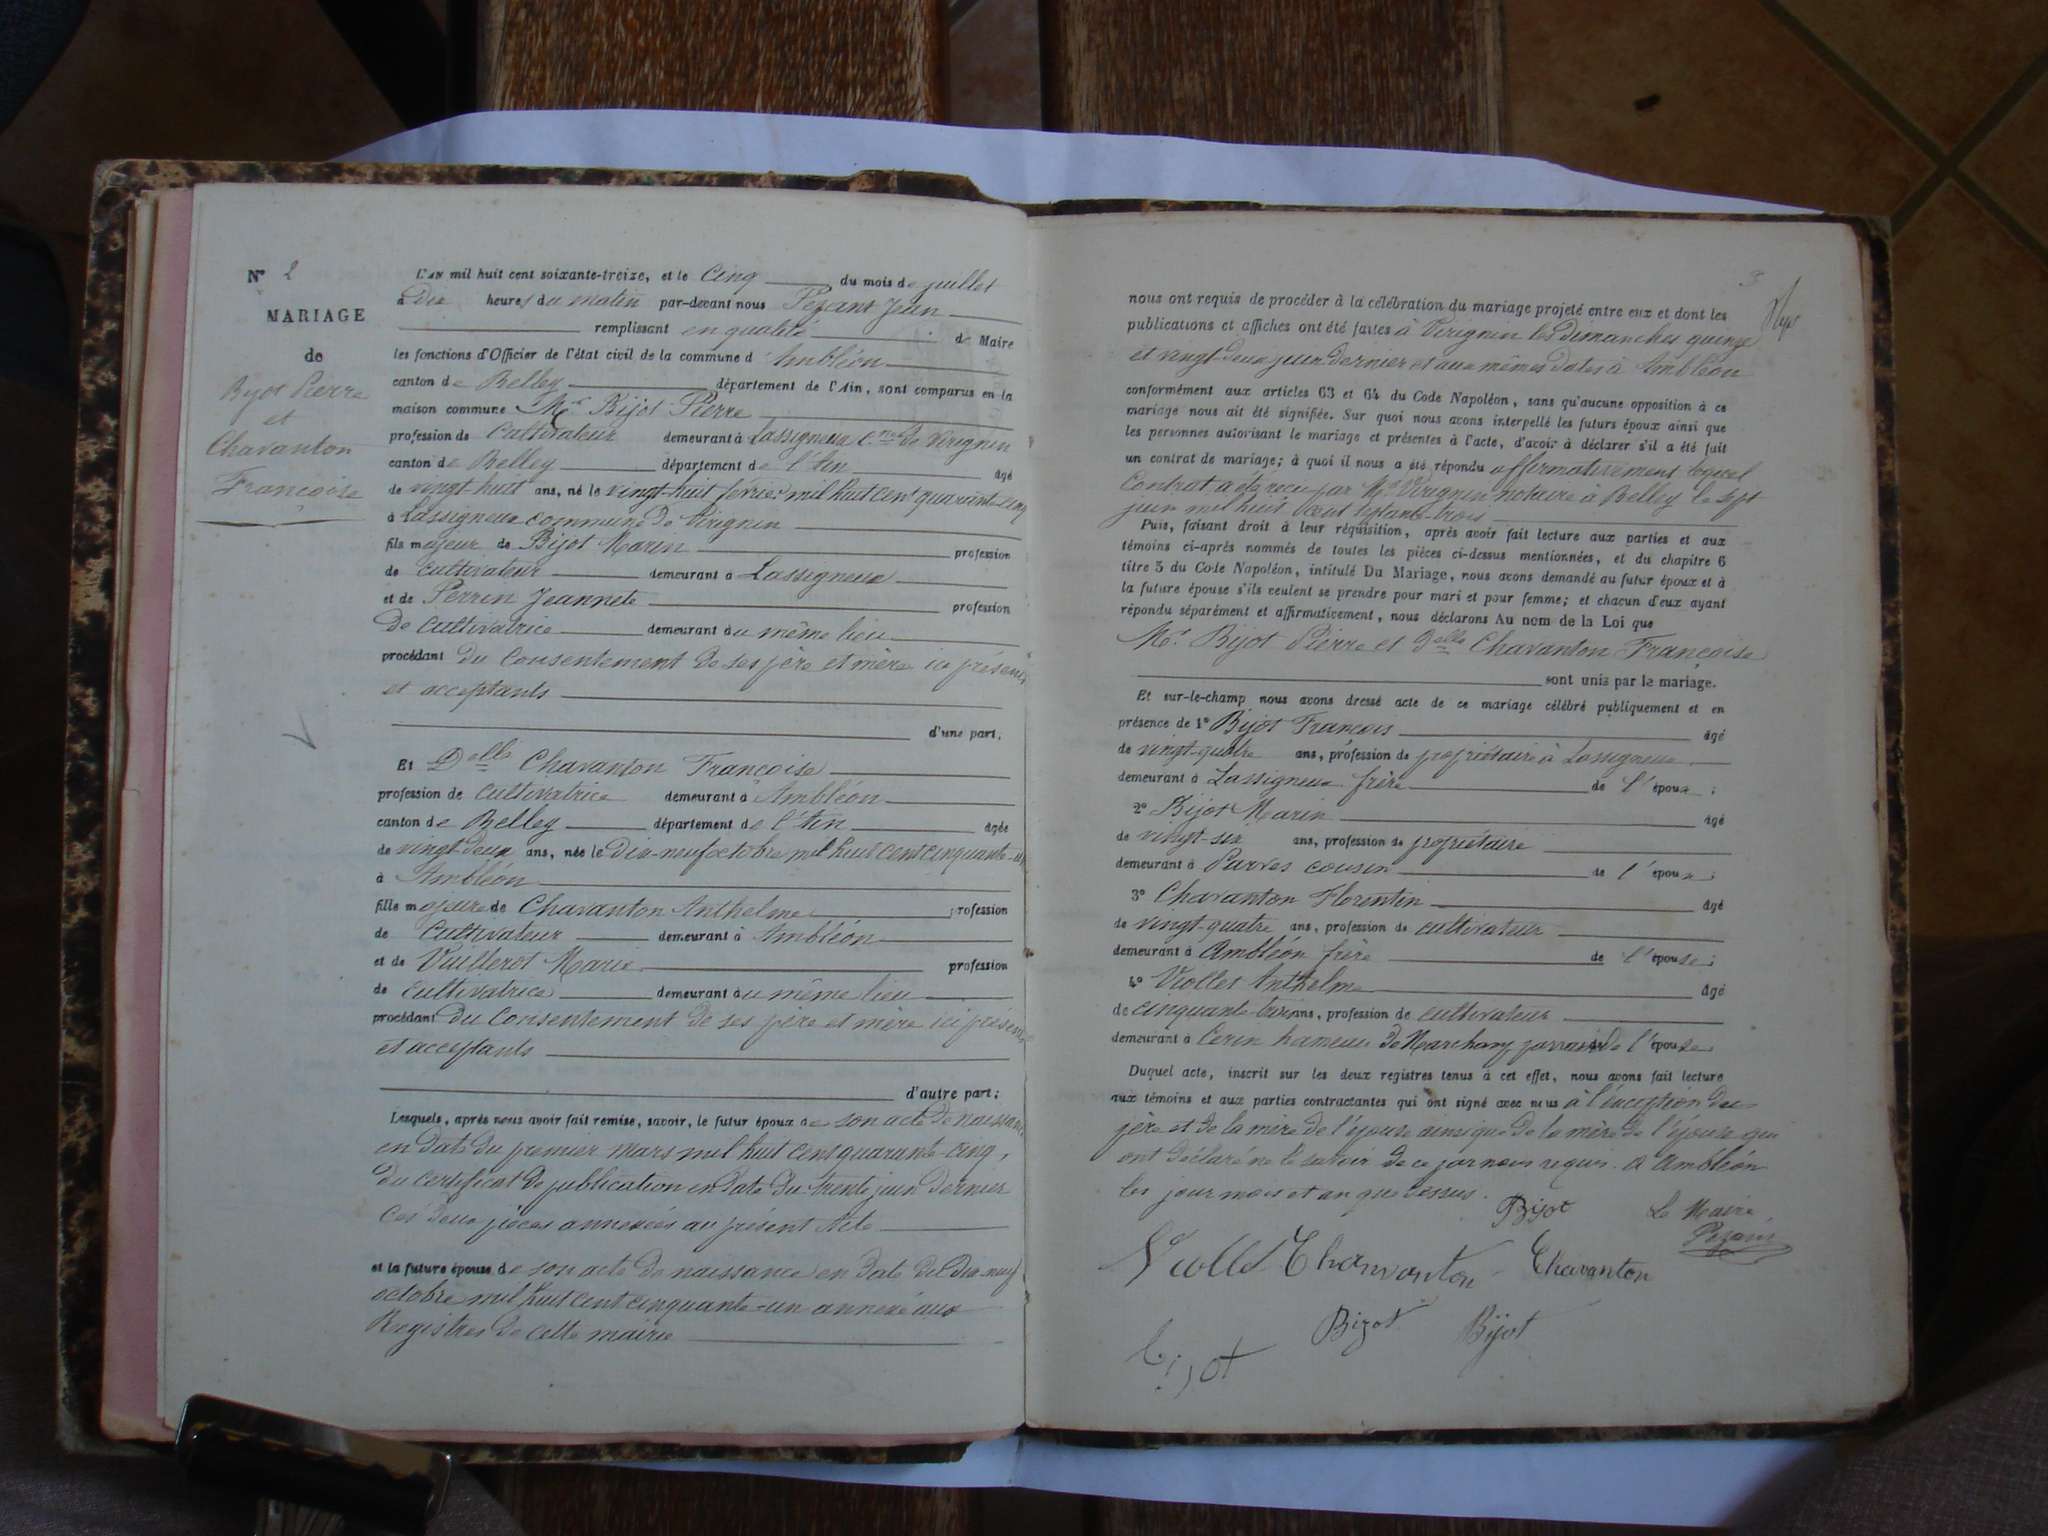 N° 2
MARIAGE
de
Bijot Pierre
et
Chavanton
Françoise
L'AN mil huit cent soixante-treize, et le Cinq du mois de juillet
à Dix heures du matin par-devant nous Pezant Jean
remplissant en qualité de Maire
les fonctions d'Officier de l'état civil de la commune d'Ambléon
canton de Belley département de l'Ain, sont comparus en la
maison commune Mr Bijot Pierre
profession de Cultivateur demeurant à Lassigneux Cne de Virignin
canton de Belley département de l'Ain âgé
de vingt-huit ans, né le vingt-huit février mil huit cent quarante-cinq
à Lassigneux commune de Virignin
fils majeur de Bijot Marin profession
de cultivateur demeurant à Lassigneux
et de Perrin Jeannete profession
de Cultivatrice demeurant au même lieu
procédant du Consentement de ses père et mère ici présents
et acceptants
d'une part;
Et Delle Chavanton Françoise
profession de Cultivatrice demeurant à Ambléon
canton de Belley département de l'Ain âgée
de vingt-deux ans, née le Dix-neuf octobre mil huit cent cinquante-un
à Ambléon
fille majeure de Chavanton Anthelme profession
de Cultivateur demeurant à Ambléon
et de Vuillerot Marie profession
de Cultivatrice demeurant au même lieu
procédant du Consentement de ses père et mère ici présents
et acceptants
d'autre part;
Lesquels, après nous avoir fait remise, savoir, le futur époux de son acte de naissance
en date du premier mars mil huit cent quarante-cinq,
du certificat de publication en date du trente juin dernier
Ces deux pièces annexées au présent Acte
et la future épouse de son acte de naissance en date du dix-neuf
octobre mil huit cent cinquante-un annexé aux
Registres de cette mairie
3
nous ont requis de procéder à la célébration du mariage projeté entre eux et dont les
publications et affiches ont été faites à Virignin les Dimanches quinze
et vingt-deux juin dernier et aux mêmes dates à Ambléon
conformément aux articles 63 et 64 du Code Napoléon, sans qu'aucune opposition à ce
mariage nous ait été signifiée. Sur quoi nous avons interpellé les futurs époux ainsi que
les personnes autorisant le mariage et présentes à l'acte, d'avoir à déclarer s'il a été fait
un contrat de mariage; à quoi il nous a été répondu affirmativement lequel
Contrat a été reçu par Me Virignin notaire à Belley le sept
juin mil huit cent septante-trois
Puis, faisant droit à leur réquisition, après avoir fait lecture aux parties et aux
témoins ci-après nommés de toutes les pièces ci-dessus mentionnées, et du chapitre 6
titre 5 du Code Napoléon, intitulé Du Mariage, nous avons demandé au futur époux et à
la future épouse s'ils veulent se prendre pour mari et pour femme; et chacun d'eux ayant
répondu séparément et affirmativement, nous déclarons Au nom de la Loi que
Mr Bijot Pierre et Delle Chavanton Françoise
sont unis par le mariage.
Et sur-le-champ nous avons dressé acte de ce mariage célébré publiquement et en
présence de 1° Bijot François âgé
de vingt-quatre ans, profession de propriétaire à Lassigneux
demeurant à Lassigneux frère de l'époux;
2° Bijot Marin âgé
de vingt-six ans, profession de propriétaire
demeurant à Parves cousin de l'époux;
3° Chavanton Florentin âgé
de vingt-quatre ans, profession de cultivateur
demeurant à Ambléon frère de l'épouse;
4° Viollet Anthelme âgé
de cinquante-trois ans, profession de cultivateur
demeurant à Cerin hameau de Marchamp parrain de l'épouse
Duquel acte, inscrit sur les deux registres tenus à cet effet, nous avons fait lecture
aux témoins et aux parties contractantes qui ont signé avec nous à l'exception du
père et de la mère de l'époux ainsi que de la mère de l'épouse qui
ont déclaré ne le savoir de ce par nous requis. A Ambléon
les jour mois et an que dessus.
Bijot Le Maire
Pezant
Viollet Chanvanton Chavanton
Bizot Bijot
bijot